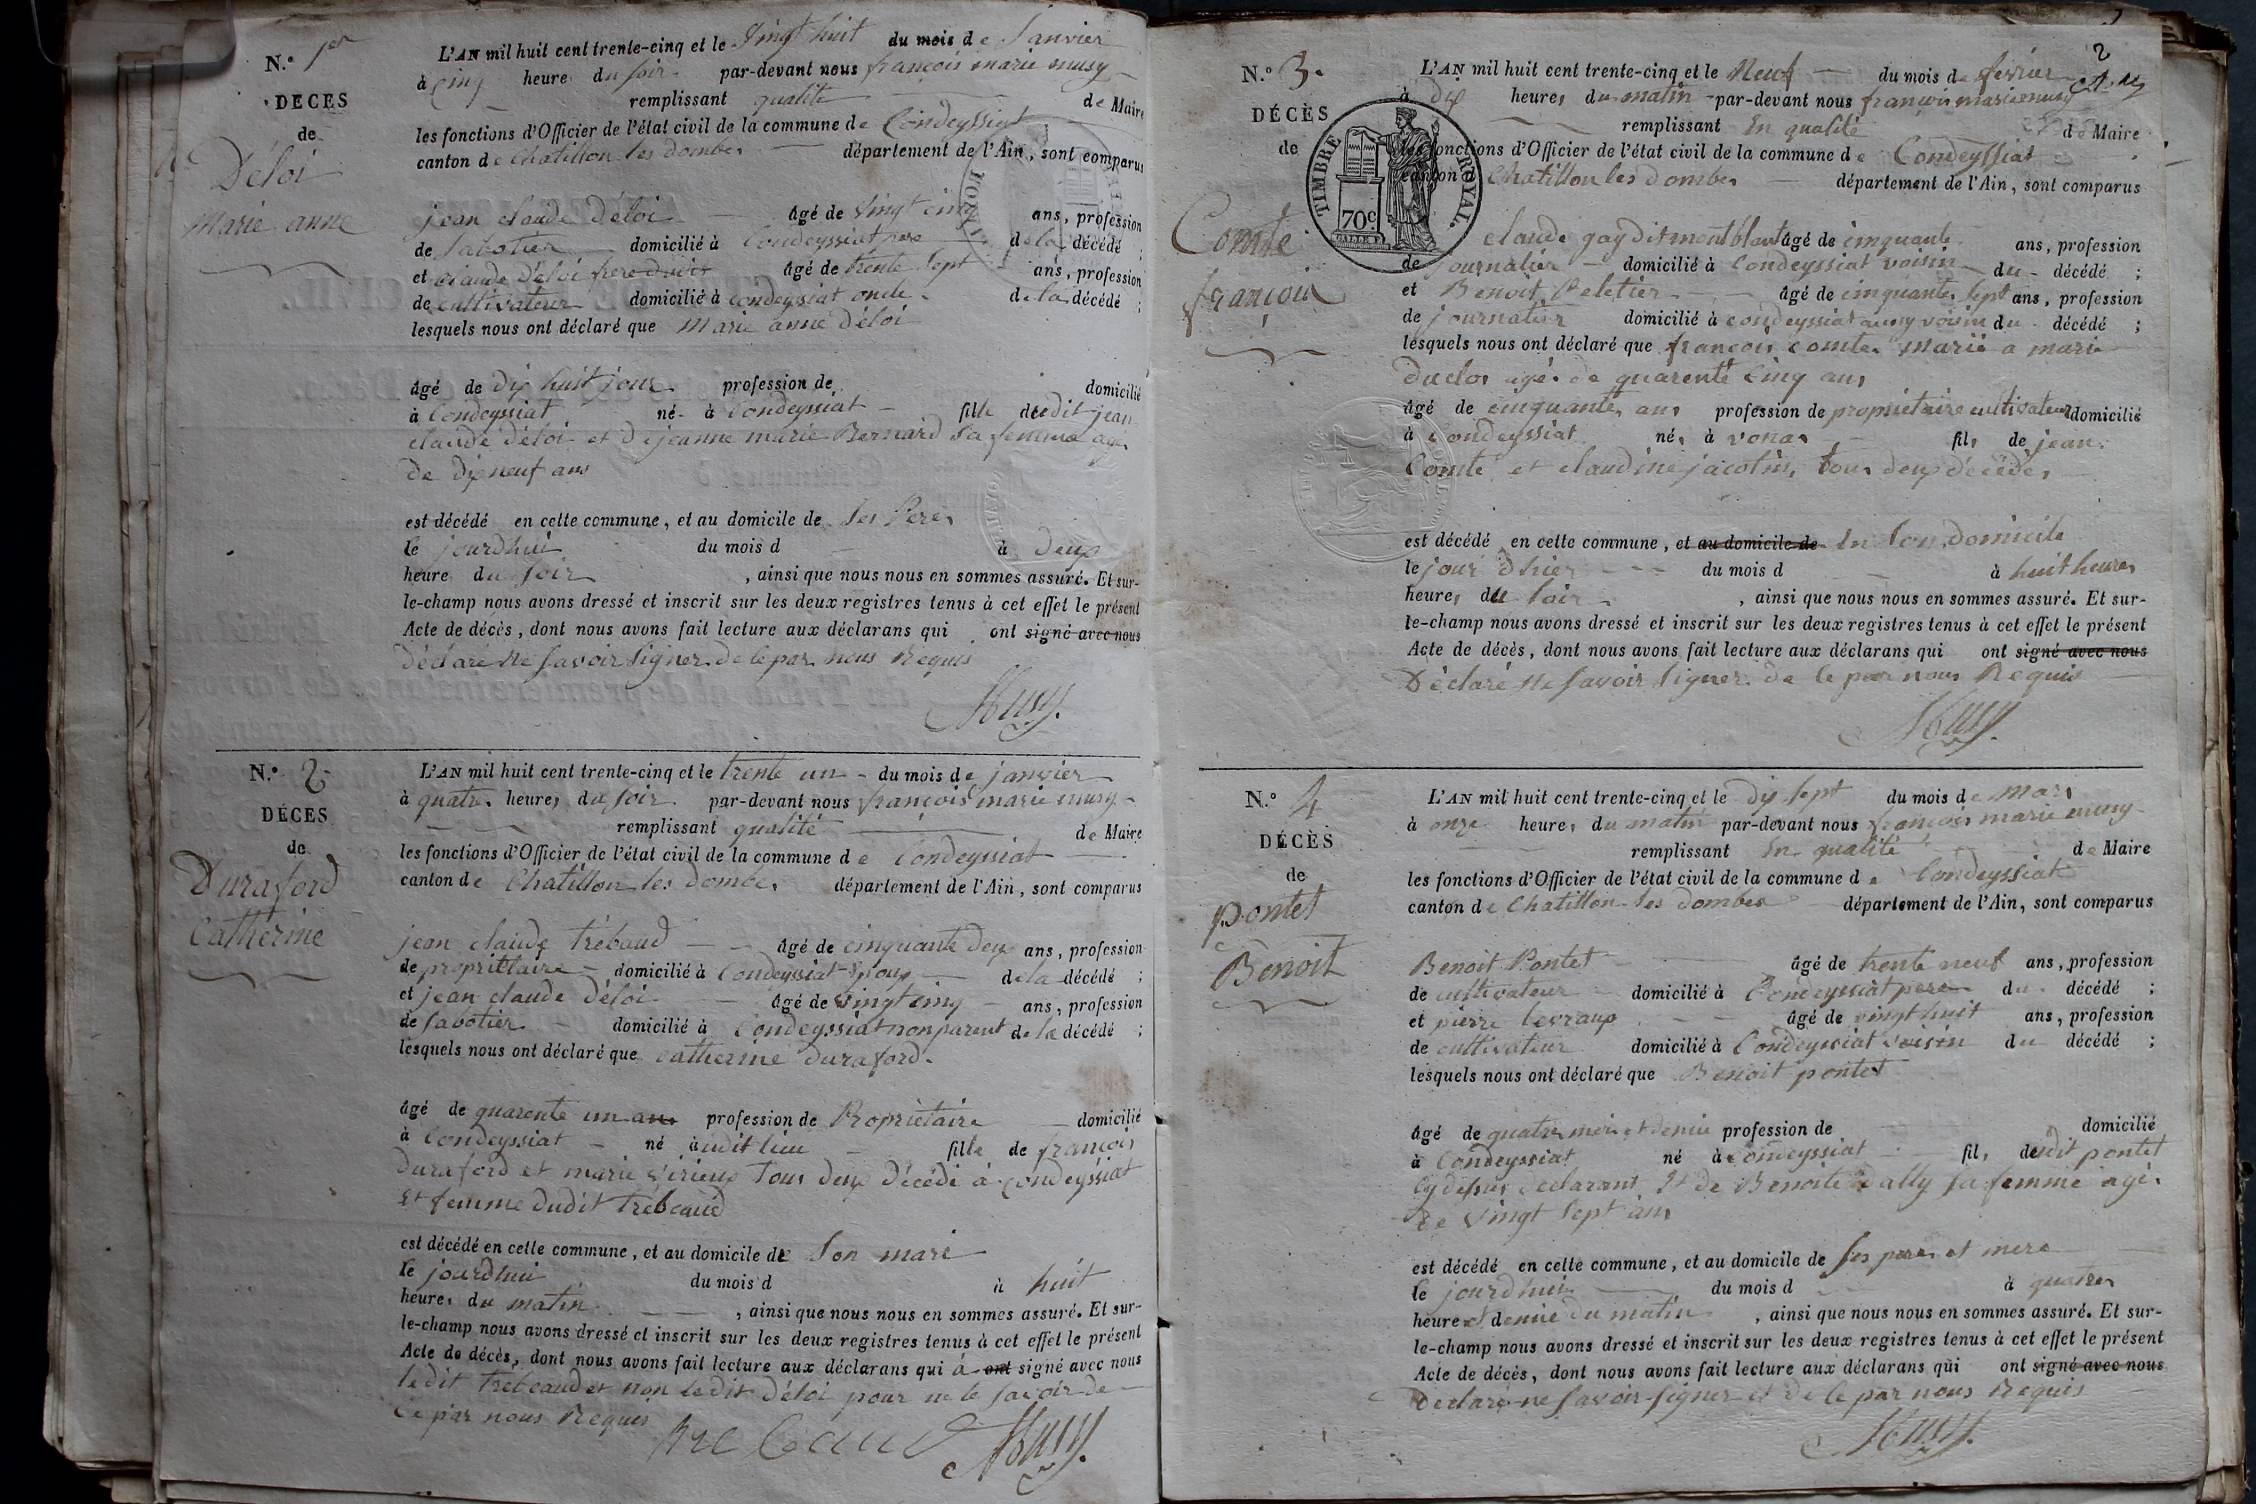 N.° 1er
DÉCÈS
de
Déloi
marie anne
L'AN mil huit cent trente-cinq et le vingt huit du mois de Janvier
à cinq heure du soir par-devant nous françois marie musy
remplissant qualité de Maire
les fonctions d'Officier de l'état civil de la commune de Condeyssiat
canton de Chatillon les dombes département de l'Ain, sont comparus
jean claude Déloi âgé de vingt cinq ans, profession
de Sabotier domicilié à Condeyssiat pere de la décédé ;
et claude Déloi âgé de trente sept ans, profession
de cultivateur domicilié à condeyssiat oncle de la décédé ;
lesquels nous ont déclaré que marie anne Déloi
âgé de dix huit jour profession de domicilié
à Condeyssiat né à Condeyssiat fille dudit jean
claude Déloi et de jeanne marie Bernard sa femme agé
de dixneuf ans
est décédé en cette commune, et au domicile de ses Peres
le jourdhui du mois d à deux
heure du soir , ainsi que nous nous en sommes assuré. Et sur-
le-champ nous avons dressé et inscrit sur les deux registres tenus à cet effet le présent
Acte de décès, dont nous avons fait lecture aux déclarans qui ont signé avec nous
Déclaré ne savoir signer de ce par nous Requis
Musy
N.° 2
DÉCÈS
de
Duraford
Catherine
L'AN mil huit cent trente-cinq et le trente un du mois de janvier
à quatre heures du soir par-devant nous françois marie musy
remplissant qualité de Maire
les fonctions d'Officier de l'état civil de la commune de Condeyssiat
canton de Chatillon les dombes département de l'Ain, sont comparus
jean claude trébaud âgé de cinquante deux ans, profession
de propriétaire domicilié à Condeyssiat Epoux de la décédé ;
et jean claude Déloi âgé de vingt cinq ans, profession
de Sabotier domicilié à Condeyssiat non parent de la décédé ;
lesquels nous ont déclaré que catherine duraford.
âgé de quarente un ans profession de Propriétaire domicilié
à Condeyssiat né audit lieu fille de françois
duraford et marie tous deux décédé à condeyssiat
Et femme dudit trébeaud
est décédé en cette commune, et au domicile de Son mari
le jourdhui du mois d à huit
heures du matin , ainsi que nous nous en sommes assuré. Et sur-
le-champ nous avons dressé et inscrit sur les deux registres tenus à cet effet le présent
Acte de décès, dont nous avons fait lecture aux déclarans qui à ont signé avec nous
ledit trebeaud et non ledit Déloi pour ne le savoir de
Ce par nous Requis
Musy
2
N.° 3.
DÉCÈS
de
Comte
françois
TIMBRE ROYAL.
70c.
L'AN mil huit cent trente-cinq et le Neuf du mois de février
à dix heures du matin par-devant nous françois marie musy
remplissant En qualité de Maire
les fonctions d'Officier de l'état civil de la commune de Condeyssiat
canton de Chatillon les dombes département de l'Ain, sont comparus
claude gay dit montblant âgé de cinquante ans, profession
de journalier domicilié à Condeyssiat voisin du décédé ;
et Benoit Peletier âgé de cinquante sept ans, profession
de journalier domicilié à condeyssiat aussy voisin du décédé ;
lesquels nous ont déclaré que françois comte marié a marie
Duclos agé de quarente cinq ans
âgé de cinquante ans profession de propriétaire cultivateur domicilié
à Condeyssiat né à vonas fils de jean
Comte et claudine jacotin, tous deux décédés
est décédé en cette commune, et au domicile de En Son domicile
le jour d'hier du mois d à huit heures
heures du Soir , ainsi que nous nous en sommes assuré. Et sur-
le-champ nous avons dressé et inscrit sur les deux registres tenus à cet effet le présent
Acte de décès, dont nous avons fait lecture aux déclarans qui ont signé avec nous
Déclaré Ne savoir signer de ce par nous Requis
Musy
N.° 4
DÉCÈS
de
pontet
Benoit
L'AN mil huit cent trente-cinq et le dix sept du mois de mars
à onze heures du matin par-devant nous françois marie musy
remplissant En qualité de Maire
les fonctions d'Officier de l'état civil de la commune de Condeyssiat
canton de Chatillon les dombes département de l'Ain, sont comparus
Benoit Pontet âgé de trente neuf ans, profession
de cultivateur domicilié à Condeyssiat pere du décédé ;
et pierre levraux âgé de vingt huit ans, profession
de cultivateur domicilié à Condeyssiat voisin du décédé ;
lesquels nous ont déclaré que Benoit pontet
âgé de quatre mois et demie profession de domicilié
à Condeyssiat né à Condeyssiat fils dudit pontet
Cy dessus declarant Et de Benoite sa femme agée
de vingt sept ans
est décédé en cette commune, et au domicile de ses peres et mere
le jourdhui du mois d à quatres
heure et demie du matin , ainsi que nous nous en sommes assuré. Et sur-
le-champ nous avons dressé et inscrit sur les deux registres tenus à cet effet le présent
Acte de décès, dont nous avons fait lecture aux déclarans qui ont signé avec nous
Declaré ne savoir signer et de ce par nous Requis
Musy